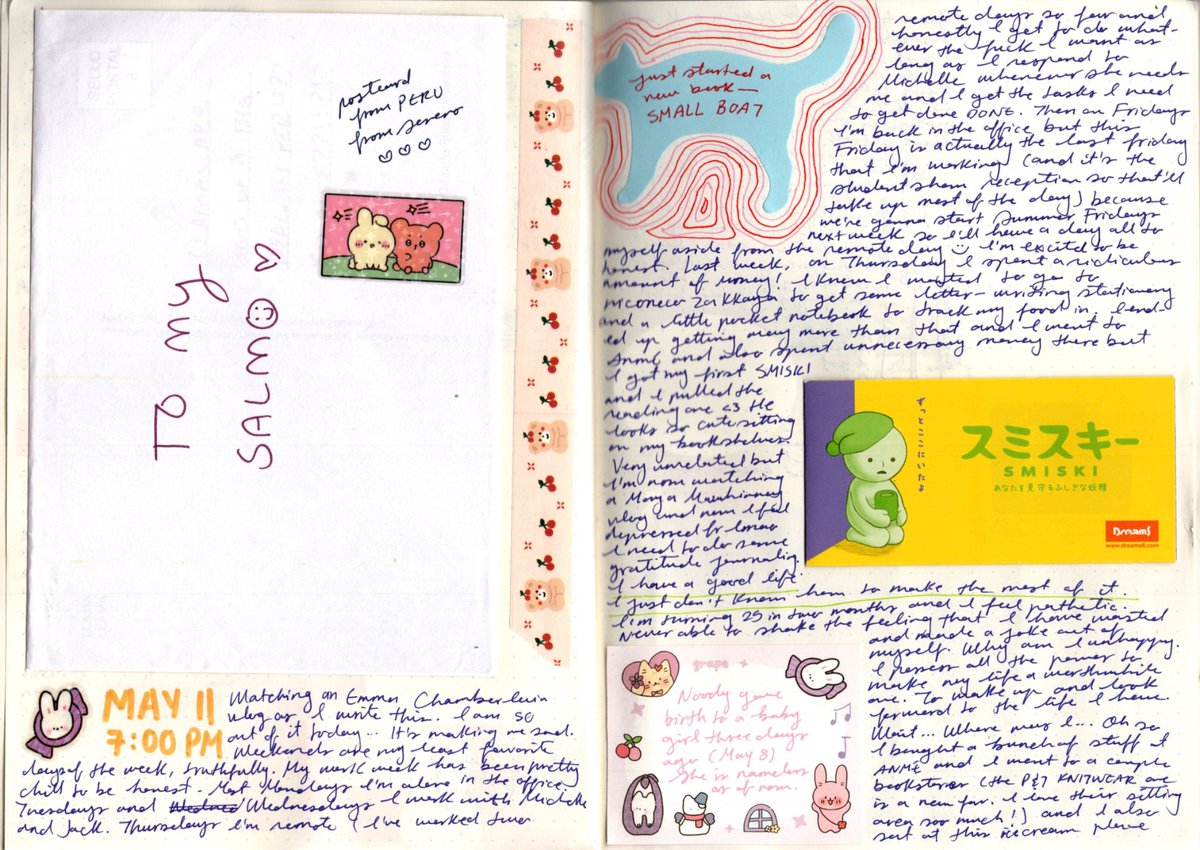 postcard
from PERU
from sereno
TO MY
SALMO
MAY 11
7:00 PM
Watching an Emma Chamberlain
vlog as I write this. I am so
out of it today... It's making me sad.
Weekends are my least favorite
days of the week, truthfully. My work week has been pretty
chill to be honest. Most Mondays I'm alone in the office,
Tuesdays and Wednesdays I work with Michelle
and Jack. Thursdays I'm remote (I've worked two
just started a
new book—
SMALL BOAT
remote days so far and
honestly I get to do what-
ever the fuck I want as
long as I respond to
Michelle whenever she needs
me and I get the tasks I need
to get done DONE. Then on Fridays
I'm back in the office but this
Friday is actually the last friday
that I'm working (and it's the
student show reception so that'll
take up most of the day) because
we're gonna start Summer Fridays
next week so I'll have a day all to
myself aside from the remote day I'm excited to be
honest. Last week, on Thursday I spent a ridiculous
amount of money! I knew I wanted to go to
niconeco zakkaya to get some letter-writing stationary
and a little pocket notebook to track my food in. I end-
ed up getting many more than that and I went to
ANME and also spent unnecessary money there but
I got my first SMISKI
and I pulled the
reading one <3 He
looks so cute sitting
on my bookshelves
Very unrelated but
I'm now watching
a Maya
vlog and now I feel
depressed fr lmao
I need to do some
gratitude journaling.
I have a good life.
I just don't know how to make the most of it.
I'm turning 25 in two months and I feel pathetic.
Never able to shake the feeling that I have wasted
and made a joke out of
myself. Why am I unhappy.
I possess all the power to
make my life a worthwhile
one. To wake up and look
forward to the life I have.
Wait... Where was I... Oh so
I bought a bunch of stuff at
ANME and I went to a couple
bookstores (the P&T KNITWEAR one
is a new fav. I love their sitting
area soo much!) and I also
sat at this icecream place
ずっとここにいたよ
スミスキー
SMISKI
あなたを見守るふしぎな妖精
Dreams
www.dreams6.com
grape
Noody gave
birth to a baby
girl three days
ago (May 8)
She is nameless
as of now.